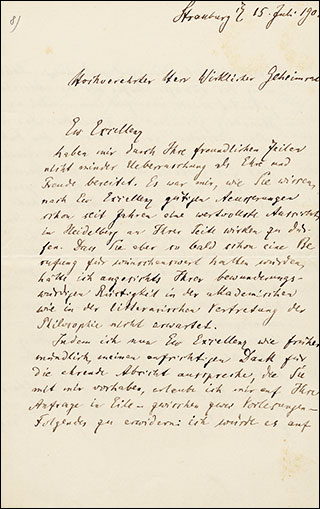 8)
Strassburg i/E 15. Juli 190
Hochverehrter Herr Wirklicher Geheimrat
Ew Exzellenz
haben mir durch Ihre freundlichen Zeilen
nicht minder Ueberraschung als Ehre und
Freude bereitet. Es war mir, wie Sie wissen,
nach Ew Exzellenz gütigen Aeusserungen
schon seit Jahren eine wertvollste Aussicht,
in Heidelberg an Ihrer Seite wirken zu dür-
fen. Dass Sie aber so bald schon eine Be
rufung für wünschenswert halten würden,
hätte ich angesichts Ihrer bewunderungs-
würdigen Rüstigkeit in der akademischen
wie in der litterarischen Vertretung der
Philosophie nicht erwartet.
Indem ich nun Ew Exzellenz wie früher
mündlich, meinen aufrichtigen Dank für
die ehrende Absicht ausspreche, die Sie
mit mir vorhaben, erlaube ich mir auf Ihre
Anfrage in Eile – zwischen zwei Vorlesungen –
Folgendes zu erwidern: ich würde es auf